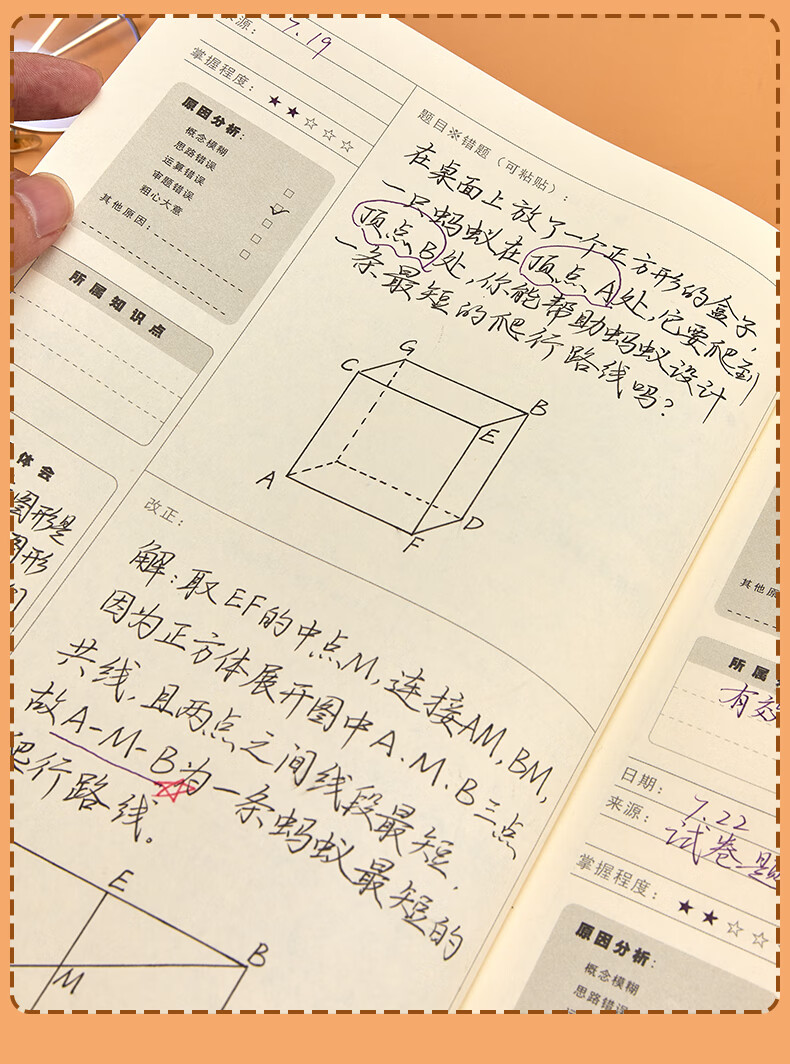 来源：7.19
掌握程度：★★☆☆☆
原因分析：
概念模糊
思路错误
运算错误
审题错误
粗心大意
其他原因：
所属知识点
体会
图形是
图形
题目※错题（可粘贴）：
在桌面上放了一个正方形的盒子，
一只蚂蚁在顶点A处，它要爬到
顶点B处，你能帮助蚂蚁设计
一条最短的爬行路线吗？
G
C
B
E
A
D
F
改正：
解：取EF的中点M，连接AM，BM，
因为正方体展开图中A.M.B三点
共线，且两点之间线段最短，
故A-M-B为一条蚂蚁最短的
爬行路线。
E
B
M
其他原
所属
有效
日期：7.22
来源：试卷题
掌握程度：★★☆☆
原因分析：
概念模糊
思路错误